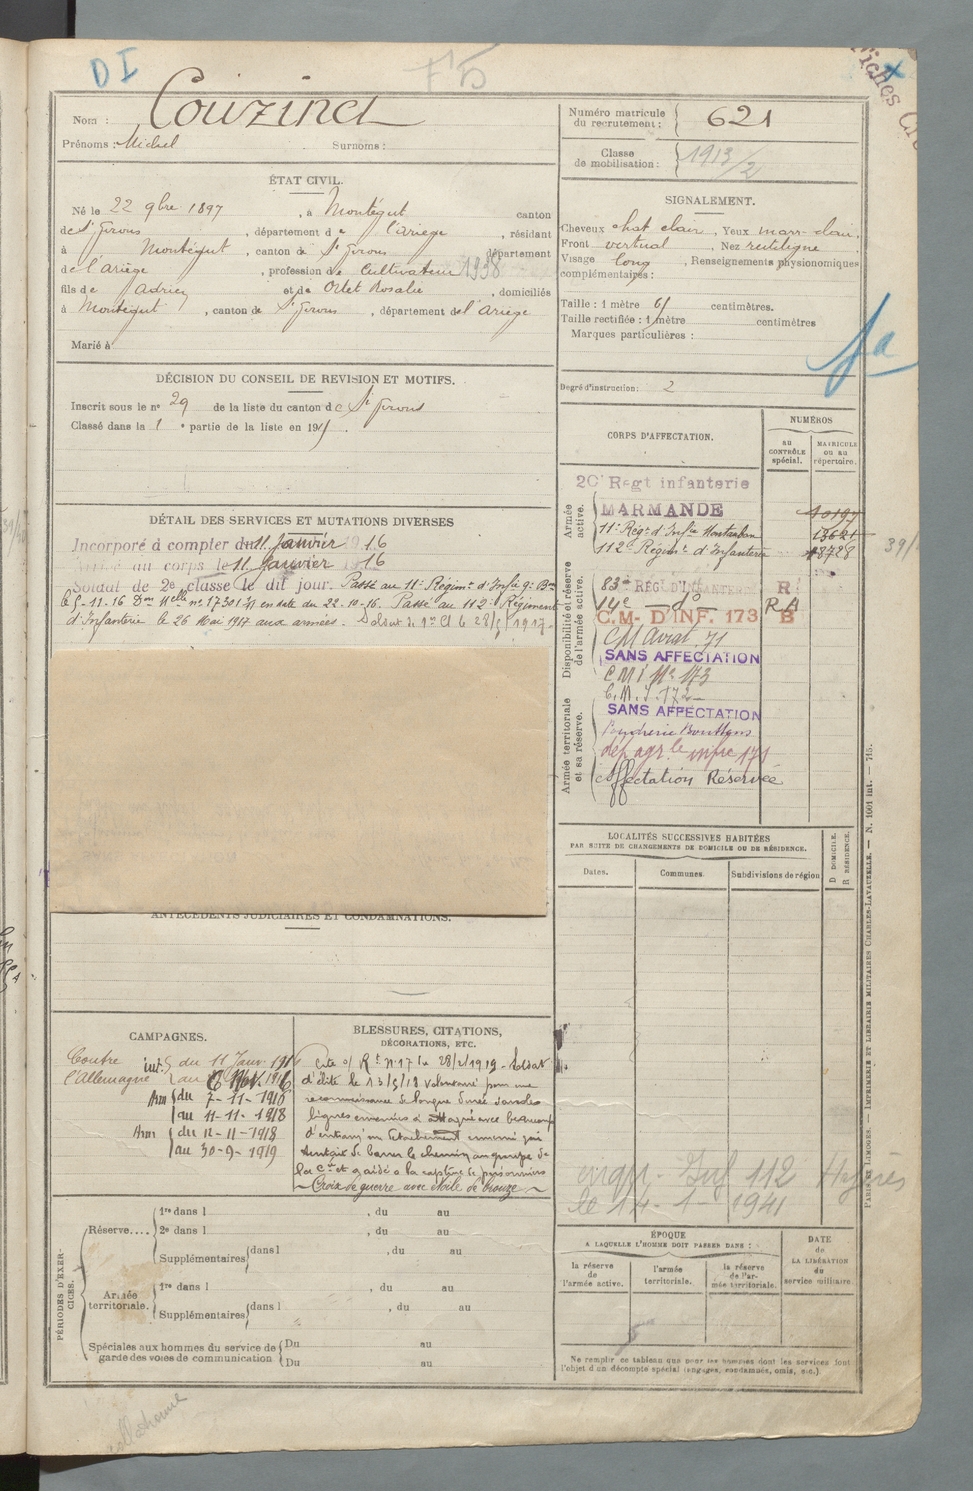 D I
F 5
Nom : Couzinet
Prénoms : Michel Surnoms :
ÉTAT CIVIL.
Né le 22 9bre 1897, à Montégut canton
de St Girons, département de l'Ariège, résidant
à Montégut, canton de St Girons département
de l'Ariège, profession de Cultivateur 1938
fils de Adrien et de Ortet Rosalie, domiciliés
à Montégut, canton de St Girons, département de l'Ariège
Marié à
DÉCISION DU CONSEIL DE REVISION ET MOTIFS.
Inscrit sous le n° 29 de la liste du canton de St Girons
Classé dans la 1 e partie de la liste en 191
DÉTAIL DES SERVICES ET MUTATIONS DIVERSES
Incorporé à compter du 11 Janvier 1916
Arrivé au corps le 11 Janvier 1916
Soldat de 2e classe le dit jour. Passé au 11e Régimt d'Infie 9e Bon
le 5-11-16 Don Melle no 17301 en date du 22-10-16. Passé au 112e Régiment
d'Infanterie le 26 Mai 1917 aux armées. Soldat de 1re Cl le 28/5/1917.
ANTÉCÉDENTS JUDICIAIRES ET CONDAMNATIONS.
CAMPAGNES.
Contre
l'Allemagne
int. du 11 Janv. 1916
au 6 Nov. 1916
Arm du 7-11-1916
au 11-11-1918
Arm du 12-11-1918
au 30-9-1919
BLESSURES, CITATIONS,
DÉCORATIONS, ETC.
Cité o/ Rt N°17 du 28/2/1919 - Soldat
d'élite le 13/5/18 volontaire pour une
reconnaissance de longue durée dans les
lignes ennemies a attaqué avec beaucoup
d'entrain un détachement ennemi qui
tentait de barrer le chemin au groupe de
la Cie et a aidé a la capture de prisonniers
Croix de guerre avec étoile de bronze
PÉRIODES D'EXERCICES.
Réserve....
1re dans l , du au
2e dans l , du au
Supplémentaires dans l , du au
Armée territoriale.
1re dans l , du au
Supplémentaires dans l , du au
Spéciales aux hommes du service de
garde des voies de communication
Du au
Du au
Numéro matricule
du recrutement : 621
Classe
de mobilisation : 1913/2
SIGNALEMENT.
Cheveux chat clair, Yeux marr-clair,
Front vertical, Nez rectiligne
Visage long, Renseignements physionomiques
complémentaires :
Taille : 1 mètre 61 centimètres.
Taille rectifiée : 1 mètre centimètres
Marques particulières :
Degré d'instruction : 2
CORPS D'AFFECTATION.
NUMÉROS
au
CONTRÔLE
spécial.
MATRICULE
ou au
répertoire.
Armée
active.
20e Regt infanterie
MARMANDE
11e Régt d'Infie Montauban
112e Régimt d'Infanterie
Disponibilité et réserve
de l'armée active.
83me RÉG. D'INFANTERIE R
14e — do — R A
C.M. D'INF. 173 B
SANS AFFECTATION
C M I No 173
C.M.I. 173
Armée territoriale
et sa réserve.
SANS AFFECTATION
Affectation Réservée
LOCALITÉS SUCCESSIVES HABITÉES
PAR SUITE DE CHANGEMENTS DE DOMICILE OU DE RÉSIDENCE.
Dates.
Communes.
Subdivisions de région
D DOMICILE.
R RÉSIDENCE.
Inf 112 Hyères
le 14-1-1941
ÉPOQUE
A LAQUELLE L'HOMME DOIT PASSER DANS :
la réserve
de
l'armée active.
l'armée
territoriale.
la réserve
de l'ar-
mée territoriale.
DATE
de
LA LIBÉRATION
du
service militaire.
Ne remplir ce tableau que pour les hommes dont les services font
l'objet d'un décompte spécial (engagés, condamnés, omis, etc.)
PARIS ET LIMOGES. — IMPRIMERIE ET LIBRAIRIE MILITAIRES CHARLES-LAVAUZELLE. — N. 1001 int. — 715.